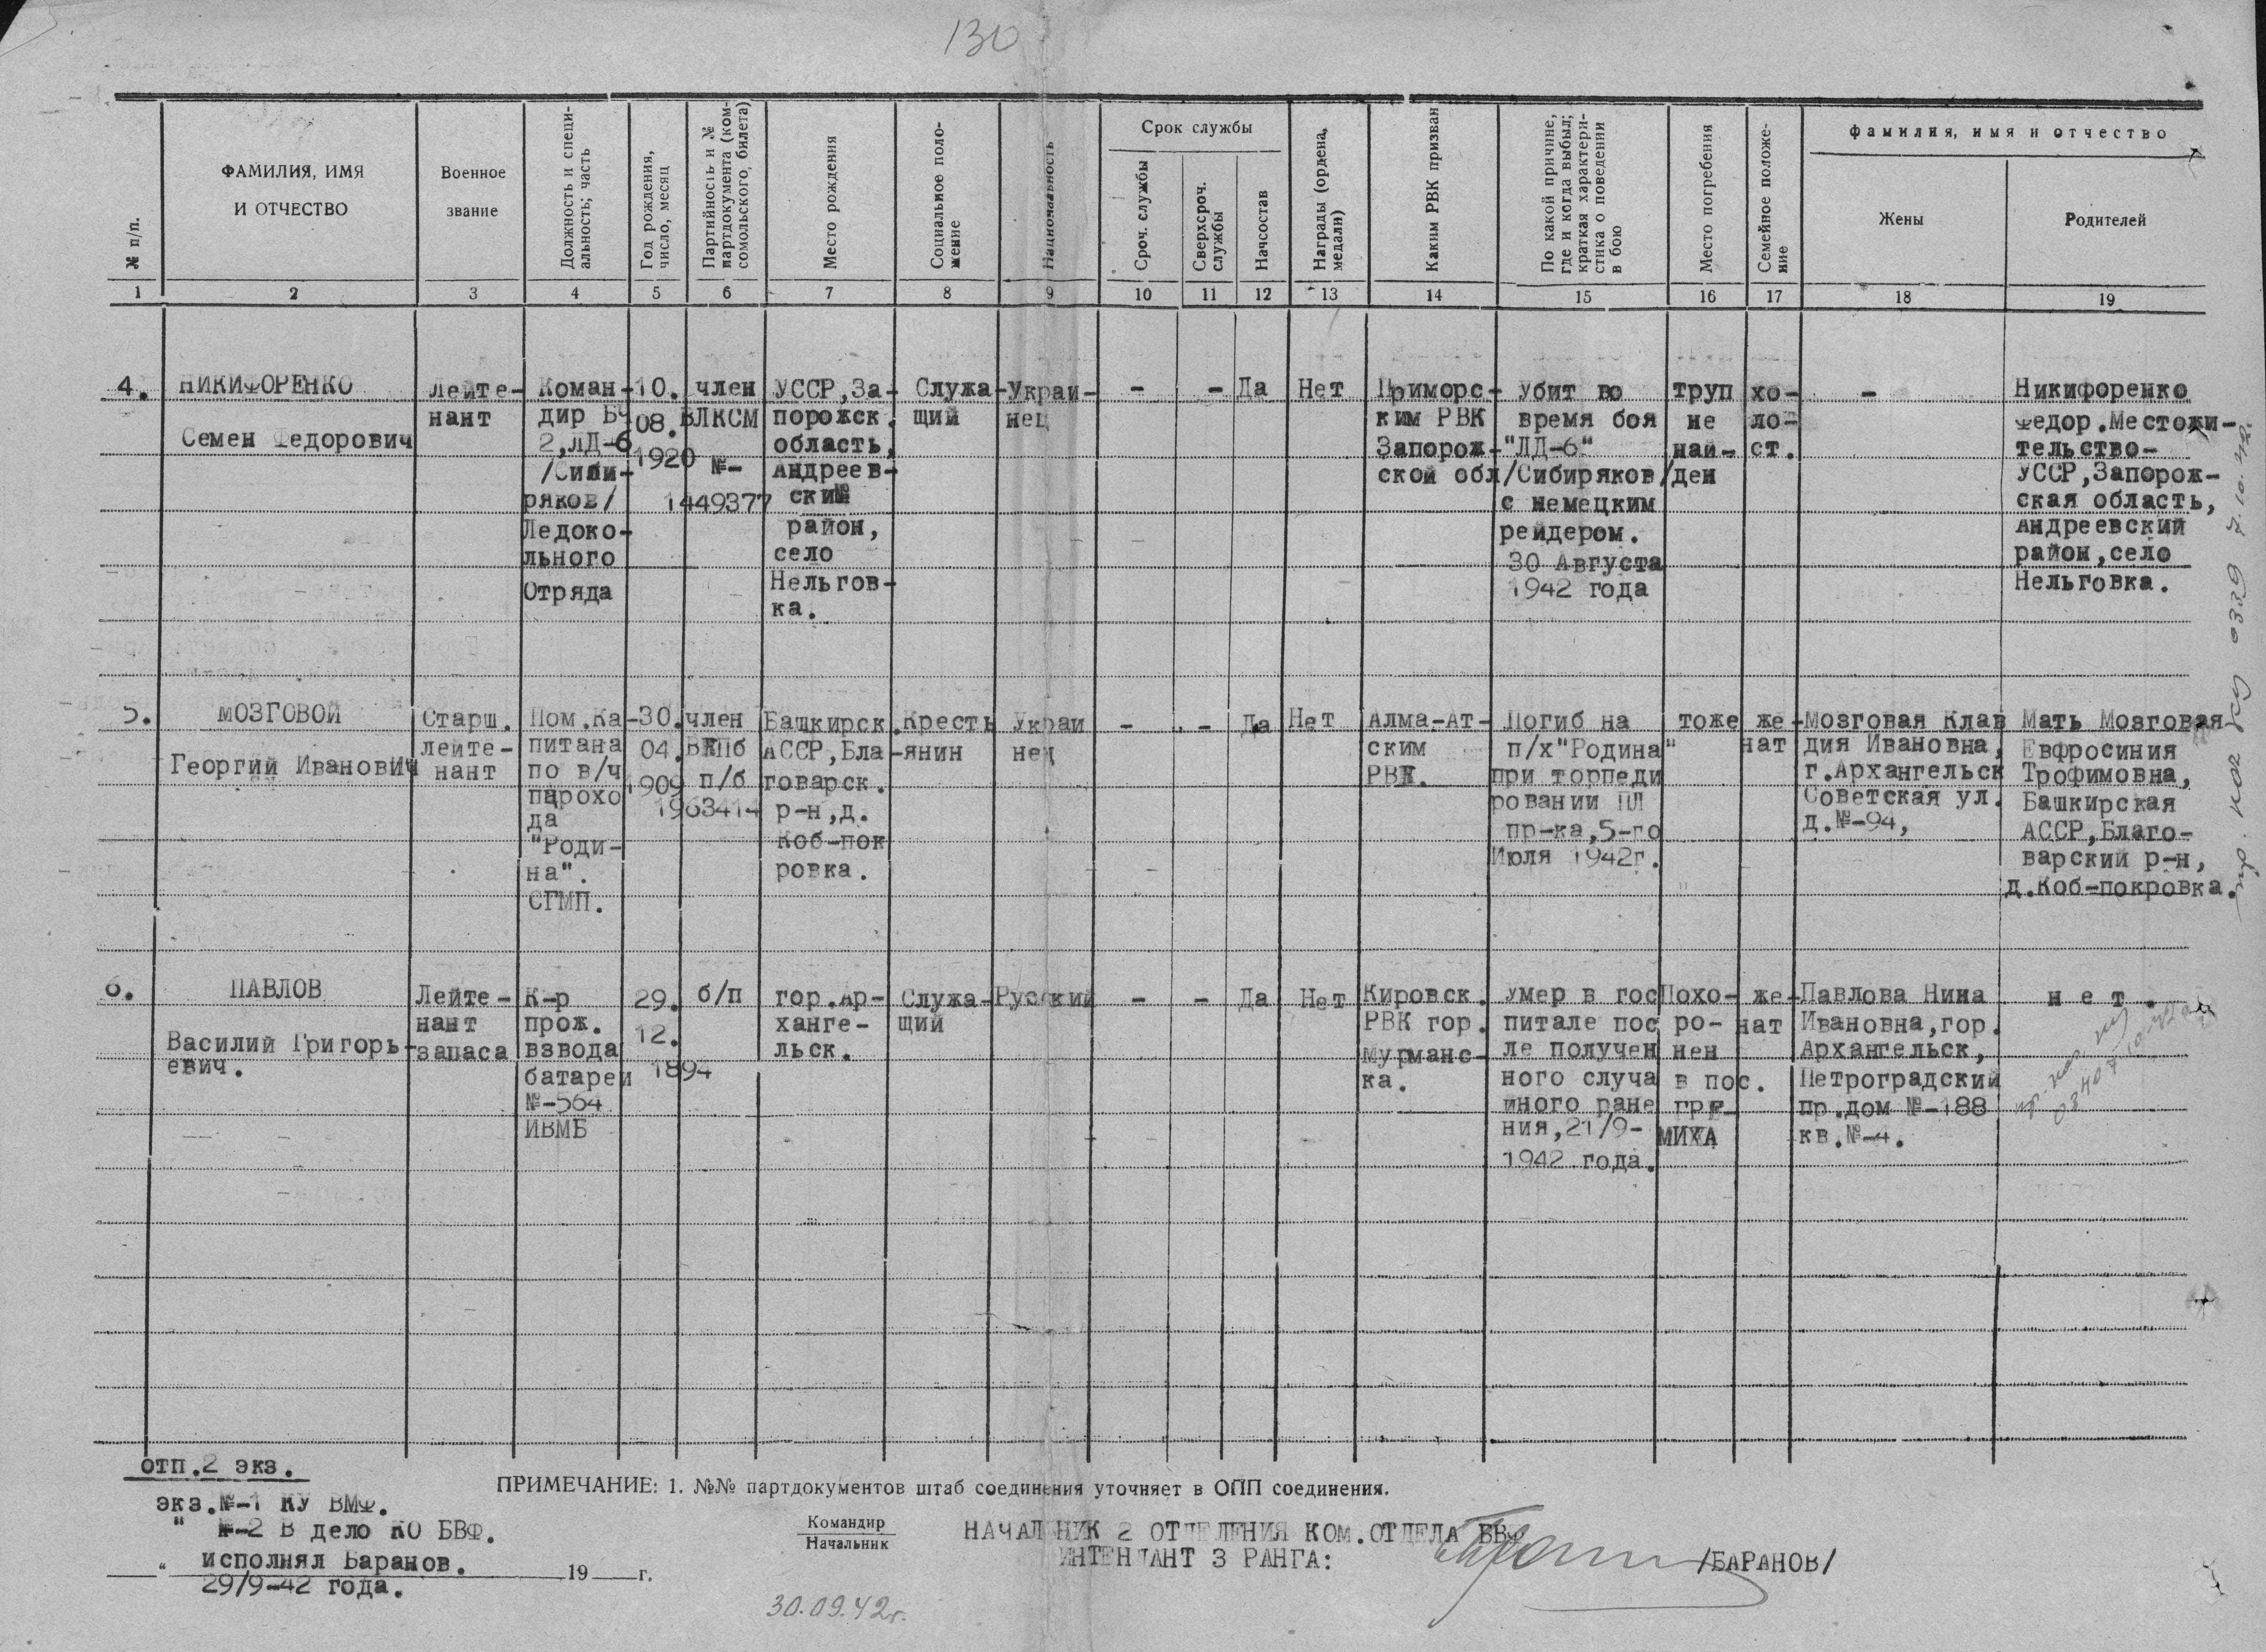 130
№ п/п.
ФАМИЛИЯ, ИМЯ
И ОТЧЕСТВО
Военное
звание
Должность и специ-
альность; часть
Год рождения,
число, месяц
Партийность и №
партдокумента (ком-
сомольского, билета)
Место рождения
Социальное поло-
жение
Национальность
Срок службы
Сроч. службы
Сверхсроч.
службы
Начсостав
Награды (ордена,
медали)
Каким РВК призван
По какой причине,
где и когда выбыл;
краткая характери-
стика о поведении
в бою
Место погребения
Семейное положе-
ние
фамилия, имя и отчество
Жены
Родителей
1 2 3 4 5 6 7 8 9 10 11 12 13 14 15 16 17 18 19
4.
НИКИФОРЕНКО
Семен Федорович
Лейте-
нант
Коман-
дир БЧ
2,ЛД-6
/Сиби-
ряков/
Ледоко-
льного
Отряда
10.
08.
1920
член
ВЛКСМ
№-
1449377
УССР,За-
порожск.
область,
Андреев-
ский
район,
село
Нельгов-
ка.
Служа-
щий
Украи-
нец
-
-
Да
Нет
Приморс-
ким РВК
Запорож-
ской обл
Убит во
время боя
"ЛД-6"
/Сибиряков/
с немецким
рейдером.
30 Августа
1942 года
труп
не
най-
ден
хо-
ло-
ст.
-
Никифоренко
Федор.Местожи-
тельство-
УССР,Запорож-
ская область,
Андреевский
район,село
Нельговка.
5.
МОЗГОВОЙ
Георгий Иванович
Старш.
лейте-
нант
Пом.Ка-
питана
по в/ч
парохо
да
"Роди-
на".
СГМП.
30.
04.
1909
член
ВКПб
п/б
1963414
Башкирск.
АССР,Бла-
говарск.
р-н,д.
Коб-пок
ровка.
Кресть
янин
Украи
нец
-
-
Да
Нет
Алма-Ат-
ским
РВК.
Погиб на
п/х"Родина"
при торпеди
ровании ПЛ
пр-ка,5-го
Июля 1942г.
тоже
же-
нат
Мозговая Клав
дия Ивановна,
г.Архангельск
Советская ул.
д.№-94,
Мать Мозговая
Евфросиния
Трофимовна,
Башкирская
АССР,Благо-
варский р-н,
д.Коб-покровка.
6.
ПАВЛОВ
Василий Григорь-
евич.
Лейте-
нант
запаса
К-р
прож.
взвода
батареи
№-564
ИВМБ
29.
12.
1894
б/п
гор.Ар-
ханге-
льск.
Служа-
щий
Русский
-
-
Да
Нет
Кировск.
РВК гор.
Мурманс-
ка.
Умер в гос
питале пос
ле получен
ного случа
йного ране
ния,21/9-
1942 года.
Похо-
ро-
нен
в пос.
ГРЕ-
МИХА
же-
нат
Павлова Нина
Ивановна,гор.
Архангельск,
Петроградский
пр.дом №-188
кв.№-4.
нет.
0339 7.10.42г.
отп.2 экз.
экз.№-1 КУ ВМФ.
" №-2 В дело КО БВФ.
исполнял Баранов.
29/9-42 года.
" 19 г.
ПРИМЕЧАНИЕ: 1. №№ партдокументов штаб соединения уточняет в ОПП соединения.
Командир
Начальник
НАЧАЛЬНИК 2 ОТДЕЛЕНИЯ КОМ.ОТДЕЛА БВФ
ИНТЕНДАНТ 3 РАНГА:
/БАРАНОВ/
30.09.42г.